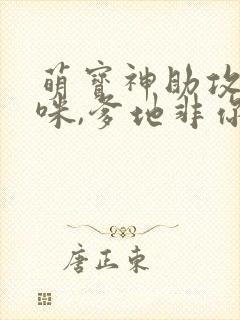 萌宝神助攻
咪,爹地非你
唐正东